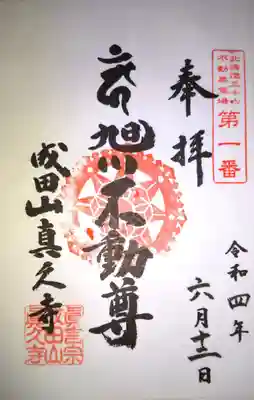 北海道三十六
不動尊霊場
第一番
奉拝
令和四年
六月十二日
旭川不動尊
成田山真久寺